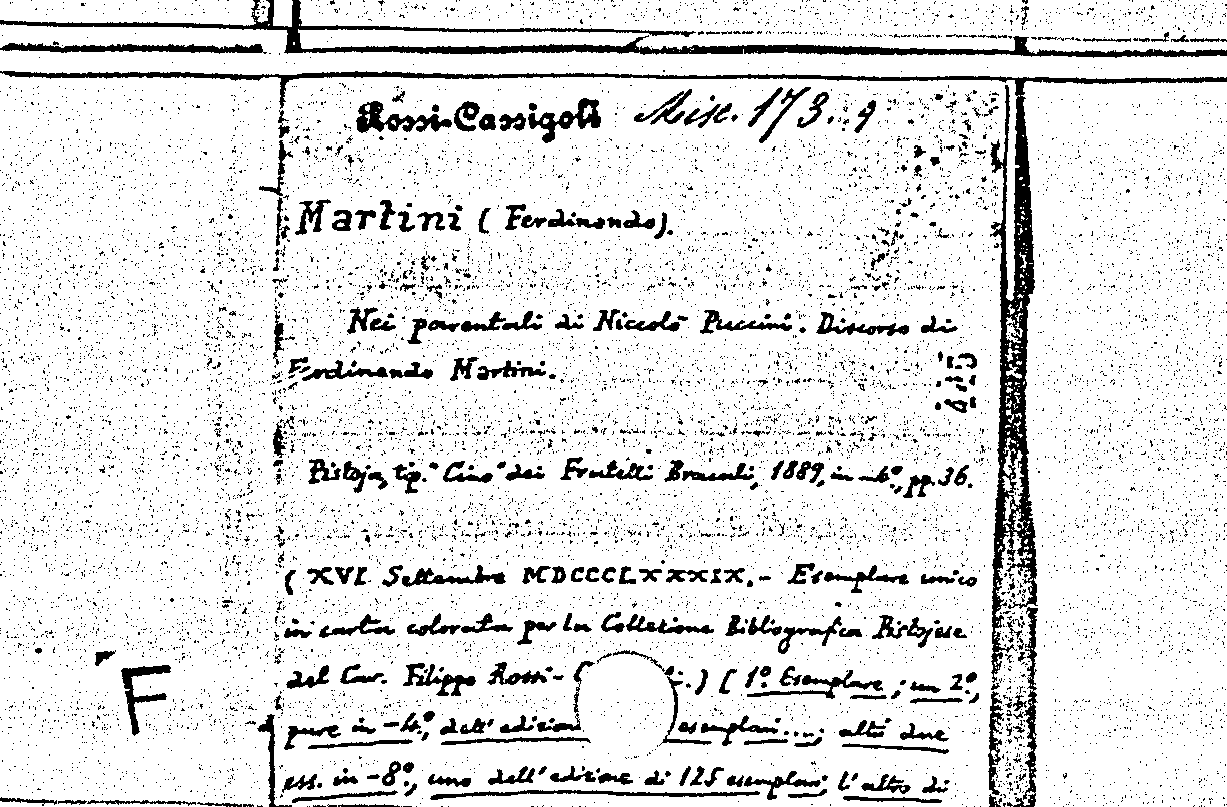 Rossi-Cassigoli Misc. 173. 9
Martini (Ferdinando).
Nei parentali di Niccolò Puccini. Discorso di
Ferdinando Martini.
Pistoja, tip. "Cino" dei Fratelli Bracali, 1889, in-16º, pp. 36.
(XVI Settembre MDCCCLXXXIX.- Esemplare unico
in carta colorata per la Collezione Bibliografica Pistojese
del Cav. Filippo Rossi- li.) (1º Esemplare; un 2º,
F
pure in -4º, dell' edizion esemplari....; altri due
es. in -8º, uno dell' edizione di 125 esemplari, l'altro di